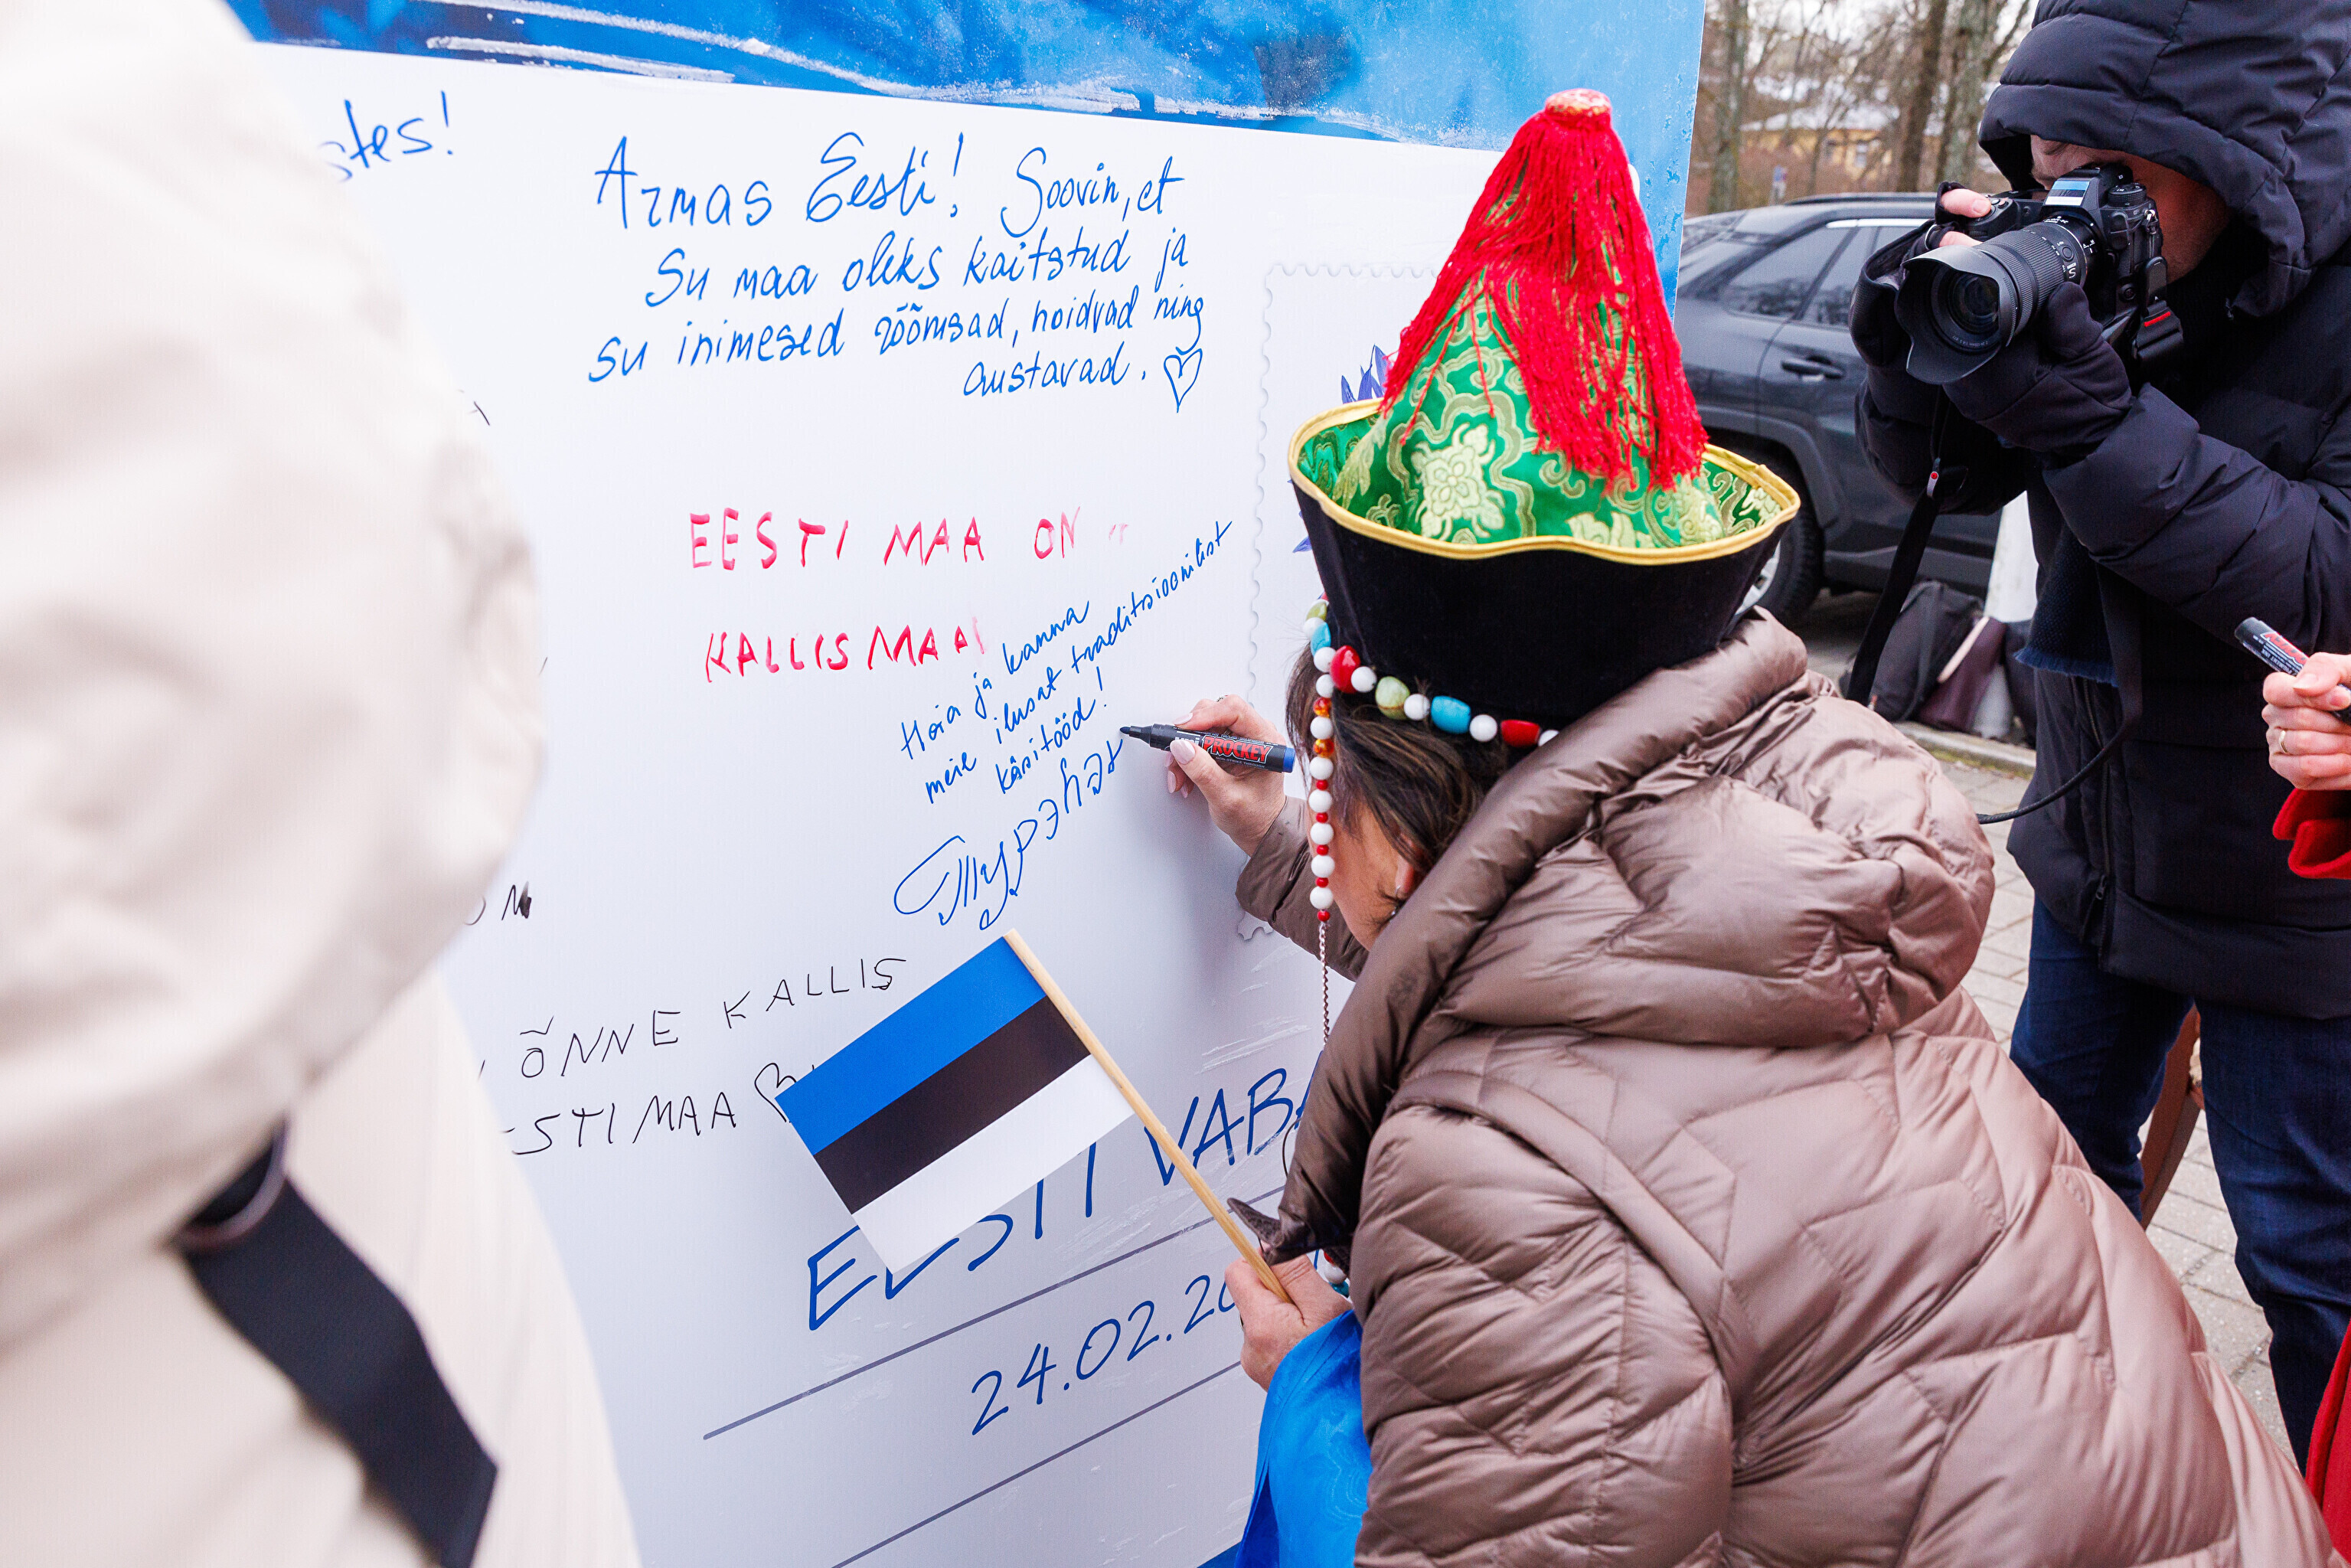 stes!
Armas Eesti! Soovin, et
Su maa oleks kaitstud ja
su inimesed rõõmsad, hoidvad ning
austavad.
EESTI MAA ON
KALLIS MAA!
Hoia ja kanna
meie ilusat traditsioonilist
käsitööd!
ÕNNE KALLIS
ESTIMAA
EESTI VABA
24.02.20
PROCKEY